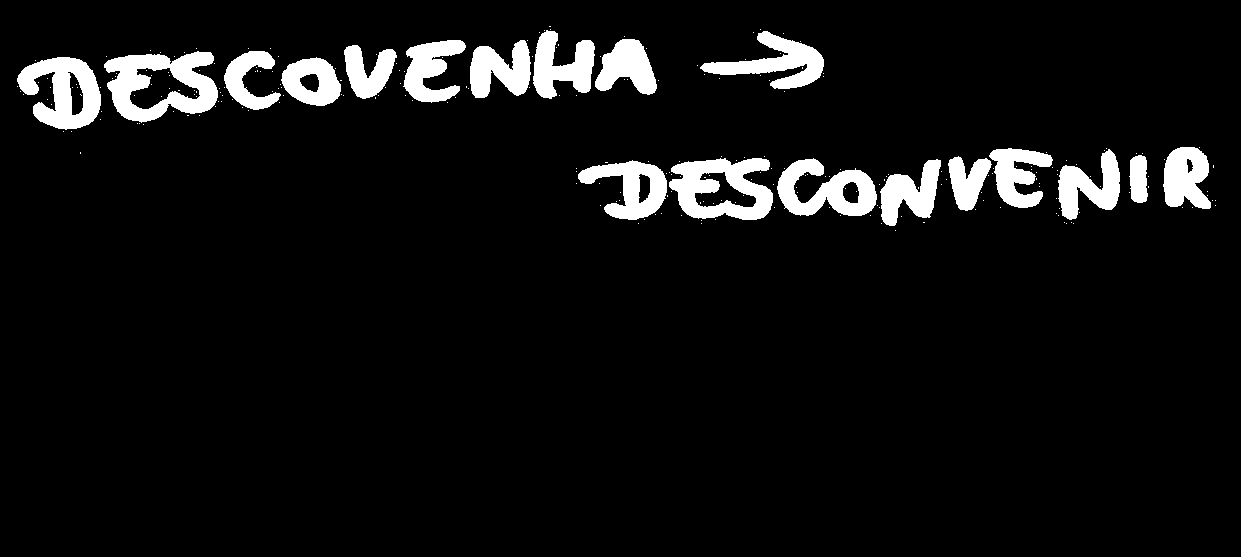 DESCOVENHA →
DESCONVENIR